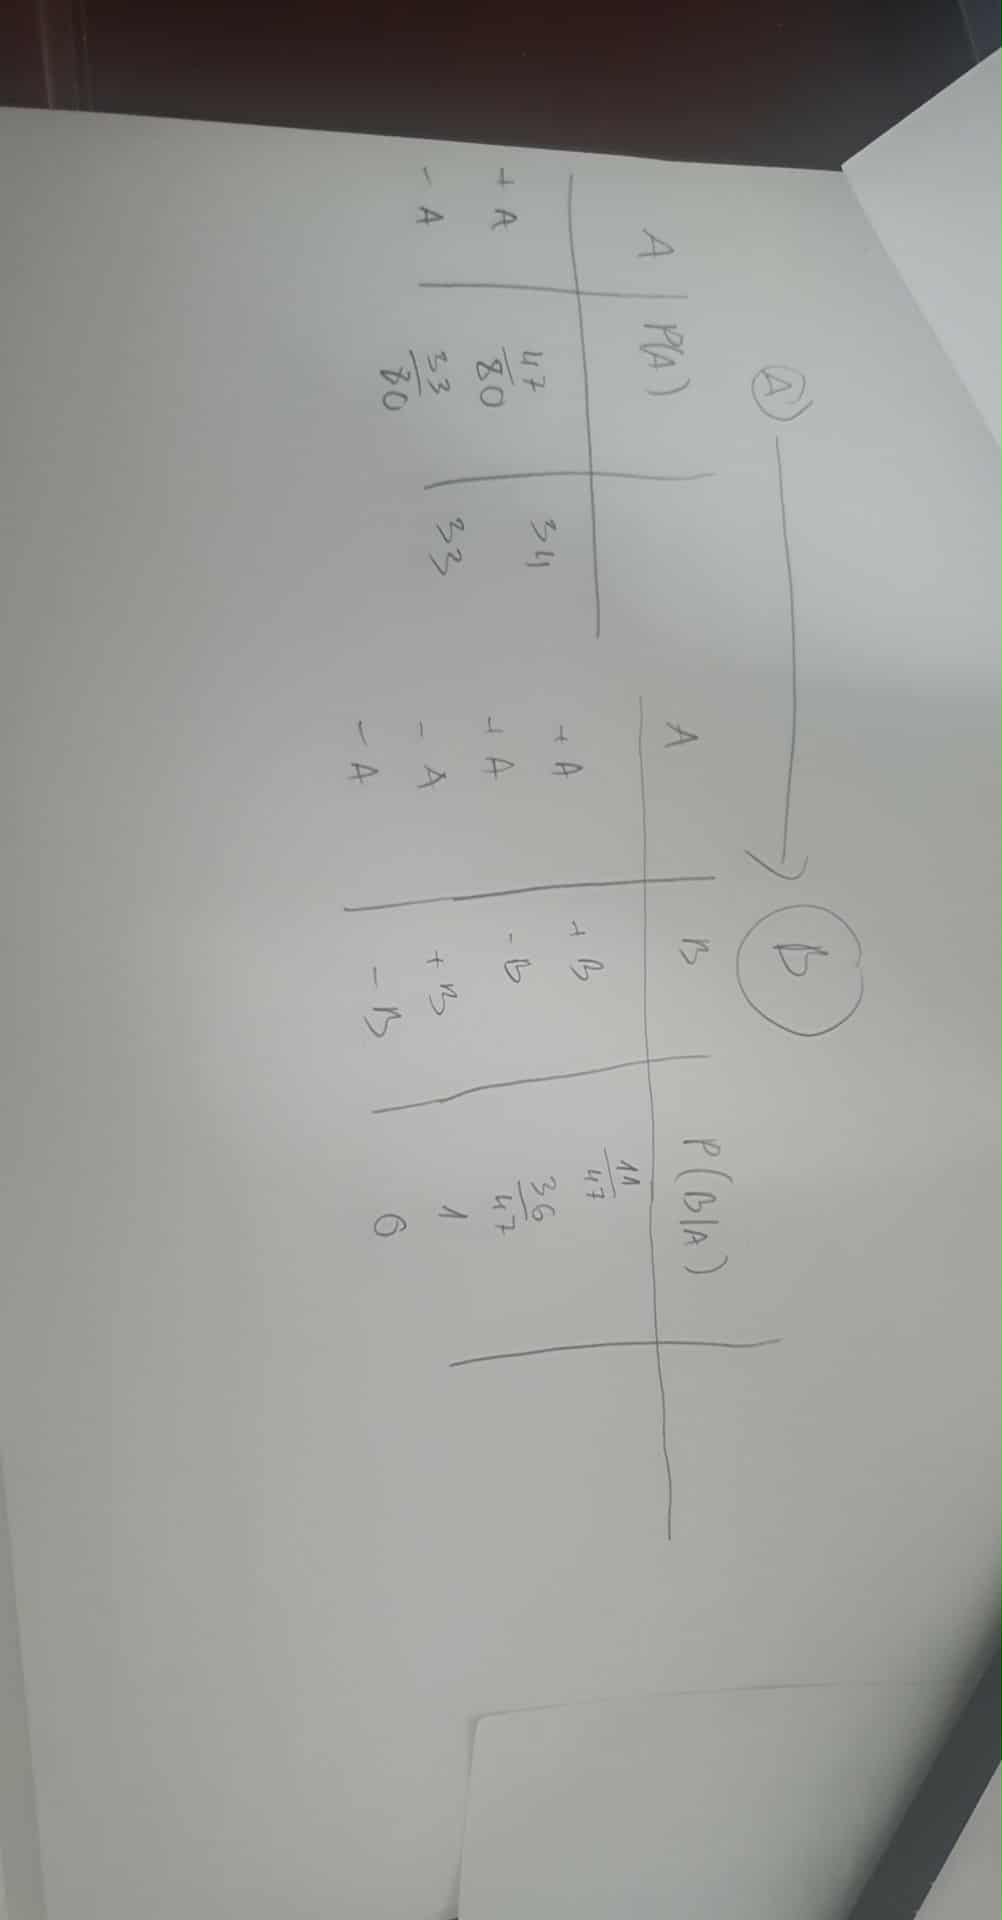 A B
A P(A)
+A 47/80 34
-A 33/80 33
A B P(B|A)
+A +B 11/47
+A -B 36/47
-A +B 1
-A -B 0